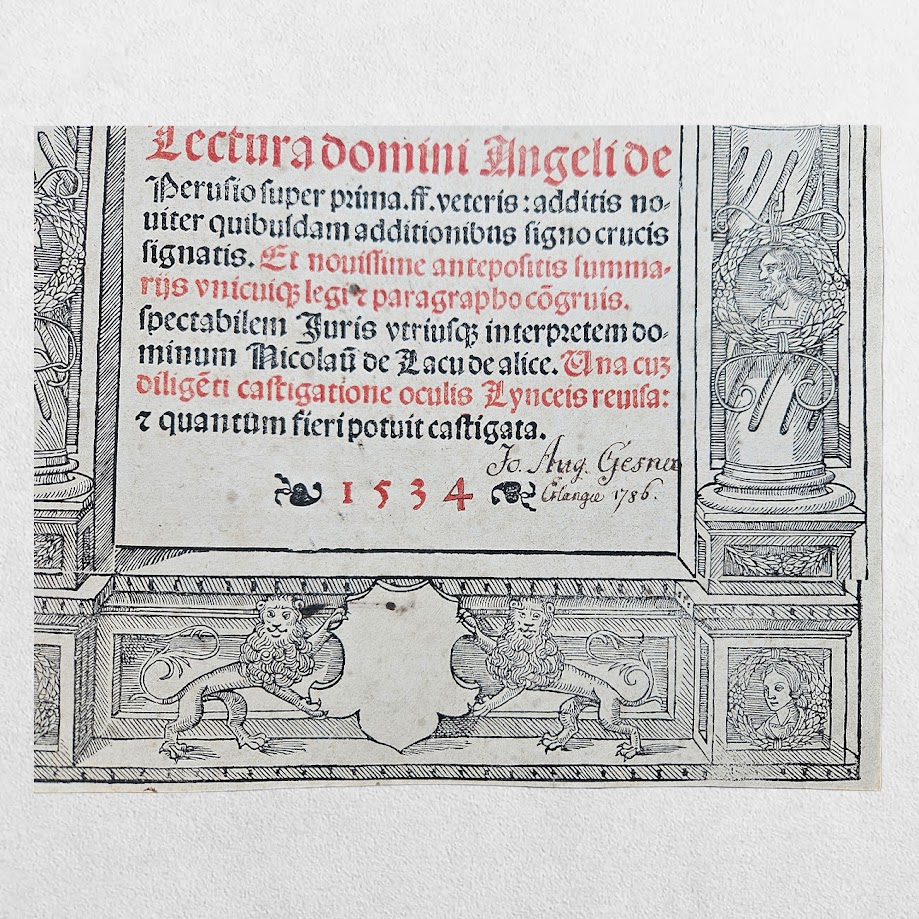 Lectura domini Angeli de
Perusio super prima.ff.veteris: additis no-
uiter quibusdam additionibus signo crucis
signatis. Et nouissime antepositis summa-
rijs vnicuiqꝫ legi ⁊ paragrapho cõgruis.
spectabilem Juris vtriusqꝫ interpretem do-
minum Nicolaũ de Lacu de alice. Una cuꝫ
diligẽti castigatione oculis Lynceis reuisa:
⁊ quantum fieri potuit castigata.
Jo. Aug. Gesner
1534
Erlangae 1786.